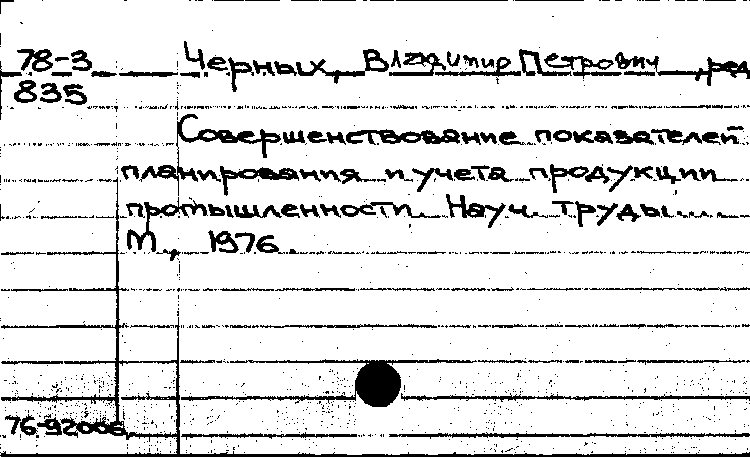 78-3 Черных, Владимир Петрович, ред
835
Совершенствование показателей
планирования и учета продукции
промышленности. Науч. труды....
М., 1976.
76-92006